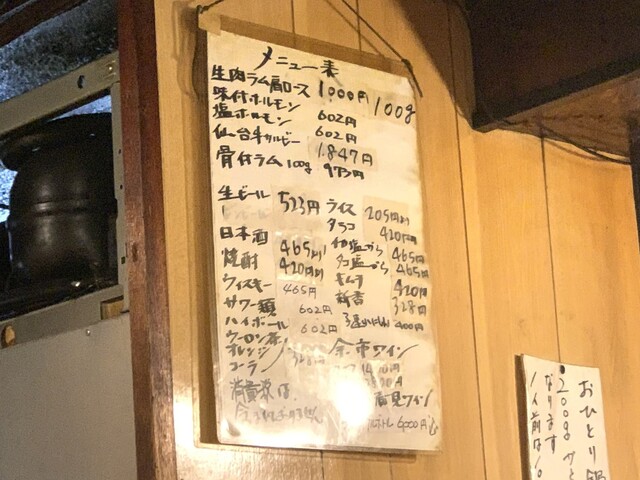 メニュー表
生肉ラム肩ロース 1,000円 100g
味付ホルモン 602円
塩ホルモン 602円
仙台牛カルビー 1,847円
骨付ラム 100g 973円
生ビール 523円
日本酒 465円より
焼酎 420円より
ウィスキー 465円
サワー類 602円
ハイボール 602円
ウーロン茶
オレンジ
コーラ
消費税は、
ライス 205円より
タラコ 420円
イカ塩から 465円
タコ塩から 465円
キムチ 420円
新香 328円
400円
余市ワイン
6,000円
おひとり鍋
200g
なります
1人前は